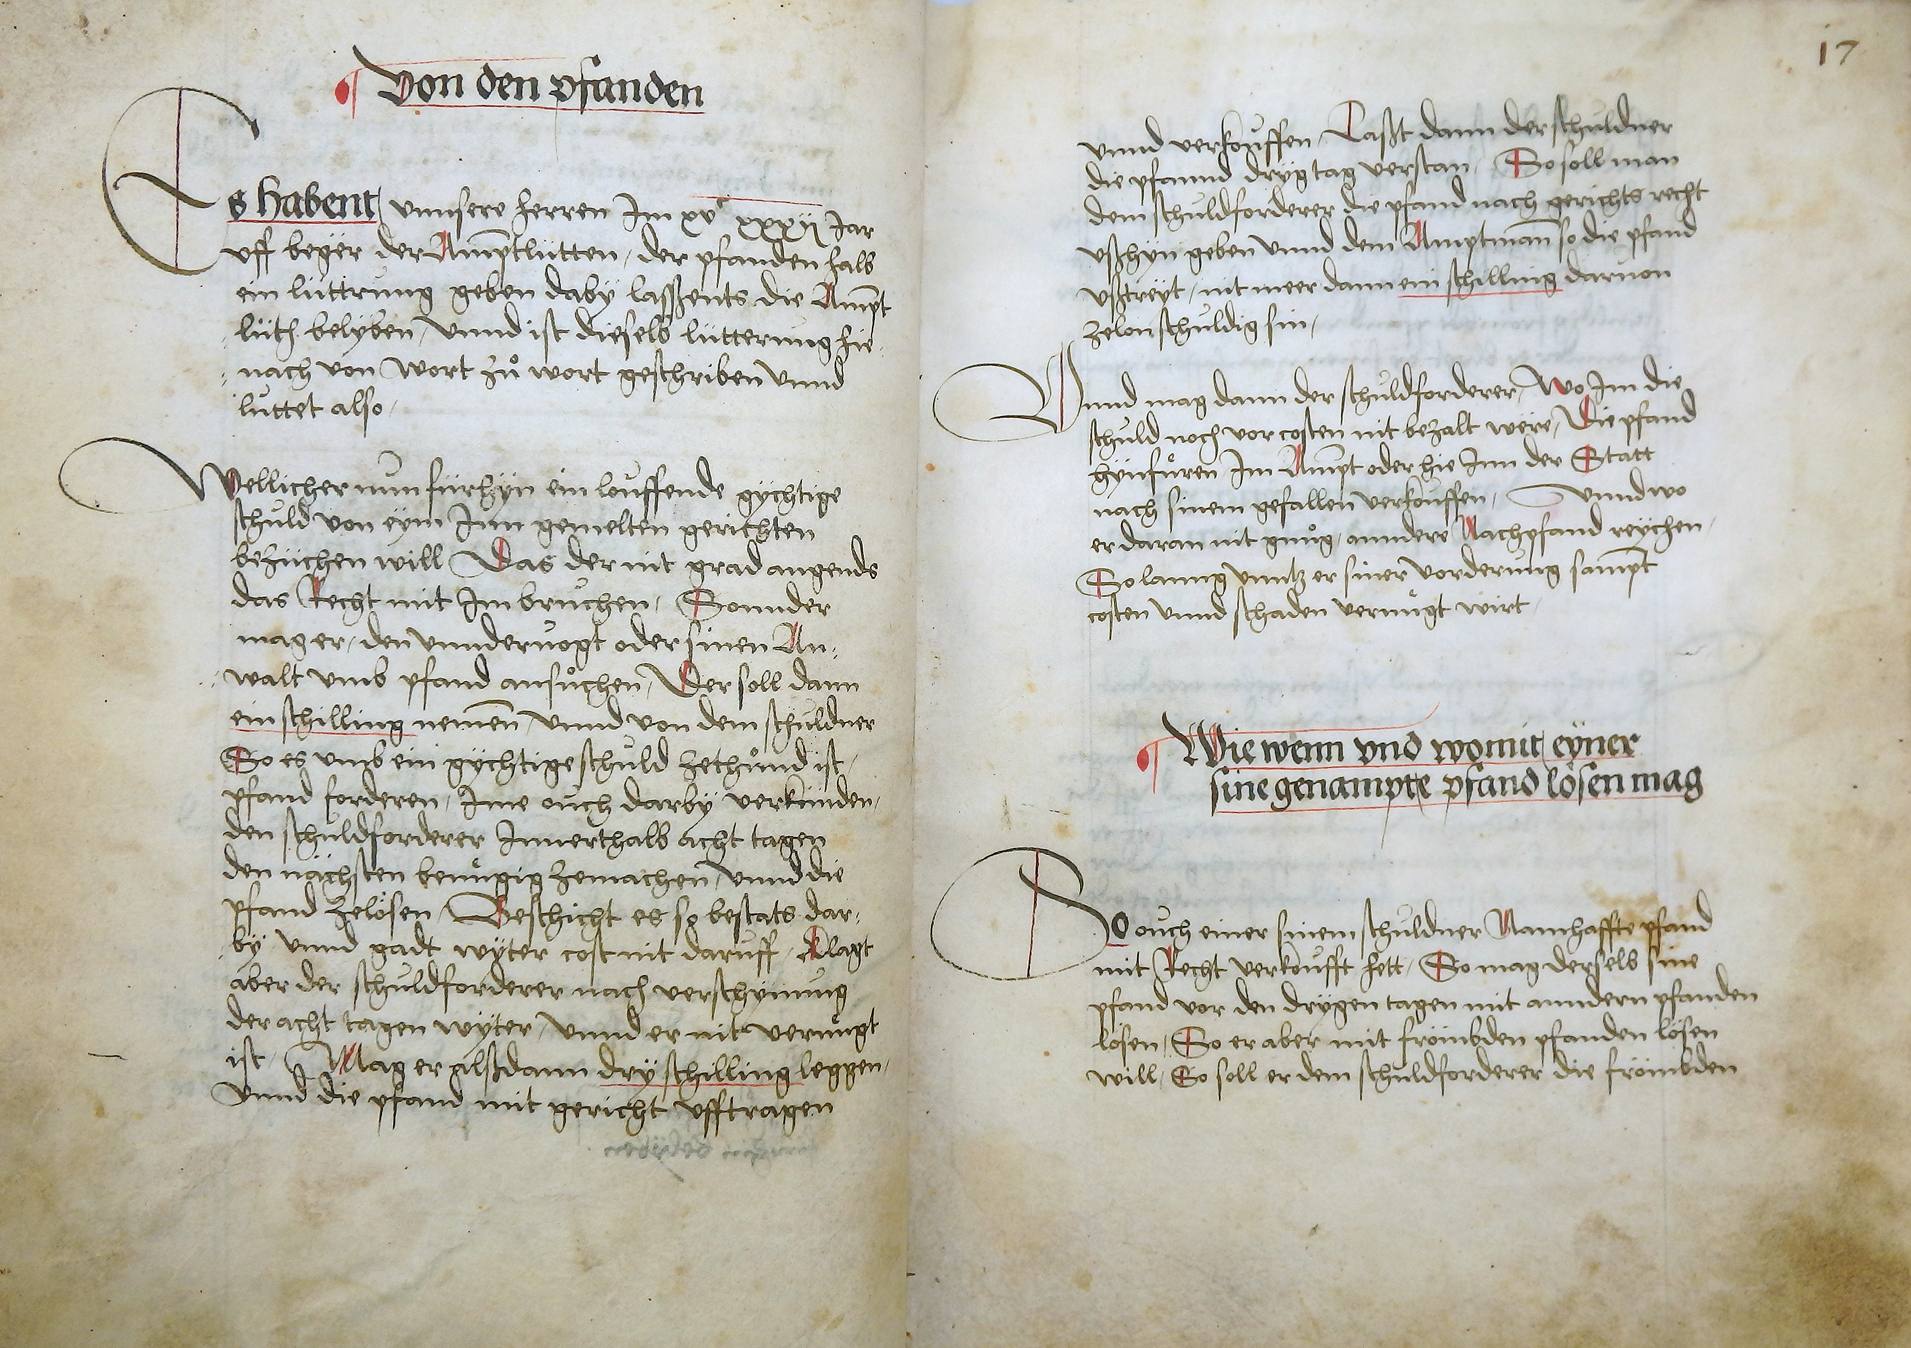 Von den pfanden
Es habent vnnsere herren Im xvᶜ xxxij Jar
vff beger der Amptlütten, der pfanden halb
ein lüttrung geben daby lassents die Ampt
lüth belyben, vnnd ist dieselb lütterung hie
nach von wort zů wort geschriben vnnd
luttet also,
Wellicher nun fürhyn ein louffende gychtige
schuld von eym Inn gemelten gerichten
bezüchen will Das der nit grad angends
das Recht mit Im bruchen, Sonnder
mag er, den vnndervogt oder sinen An-
walt vmb pfand ansůchen, Der soll dann
ein schilling nemen vnnd von dem schuldner
So es vmb ein gychtige schuld zethůnd ist,
pfand forderen, Ime ouch darby verkünden,
den schuldforderer Innerthalb acht tagen
den nächsten benůgig zemachen, vnnd die
pfand zelösen, Beschicht es so bestats dar-
by vnnd gadt wyter cost nit daruff, Clagt
aber der schuldforderer nach verschynung
der acht tagen wyter, vnnd er nit vernůgt
ist, Mag er alßdann dry schilling leggen,
vnnd die pfand mit gericht vfftragen
17
vnnd verkouffen, Laßt dann der schuldner
die pfannd dryg tag verstan, So soll man
dem schuldforderer die pfand nach gerichts recht
vßhyn geben vnnd dem Amptmann so die pfand
vßtreyt, nit meer dann ein schilling daruon
zelon schuldig sin,
Vnnd mag dann der schuldforderer, wo Im die
schuld noch vor costen nit bezalt were, Die pfand
hynfůren Im Ampt oder hie Inn der Statt
nach sinem gefallen verkouffen, vnnd wo
er daran nit gnůg, anndere Nachpfand reychen,
So lanng vnntz er siner vorderung sampt
costen vnnd schaden vernůgt wirt,
Wie wenn vnd womit eyner
sine genampte pfand lösen mag
So ouch einer sinem schuldner Namhaffte pfand
mit Recht verkoufft hett, So mag derselb sine
pfand vor den drygen tagen mit anndern pfanden
lösen, So er aber mit frömbden pfanden lösen
will, So soll er dem schuldforderer die frömbden